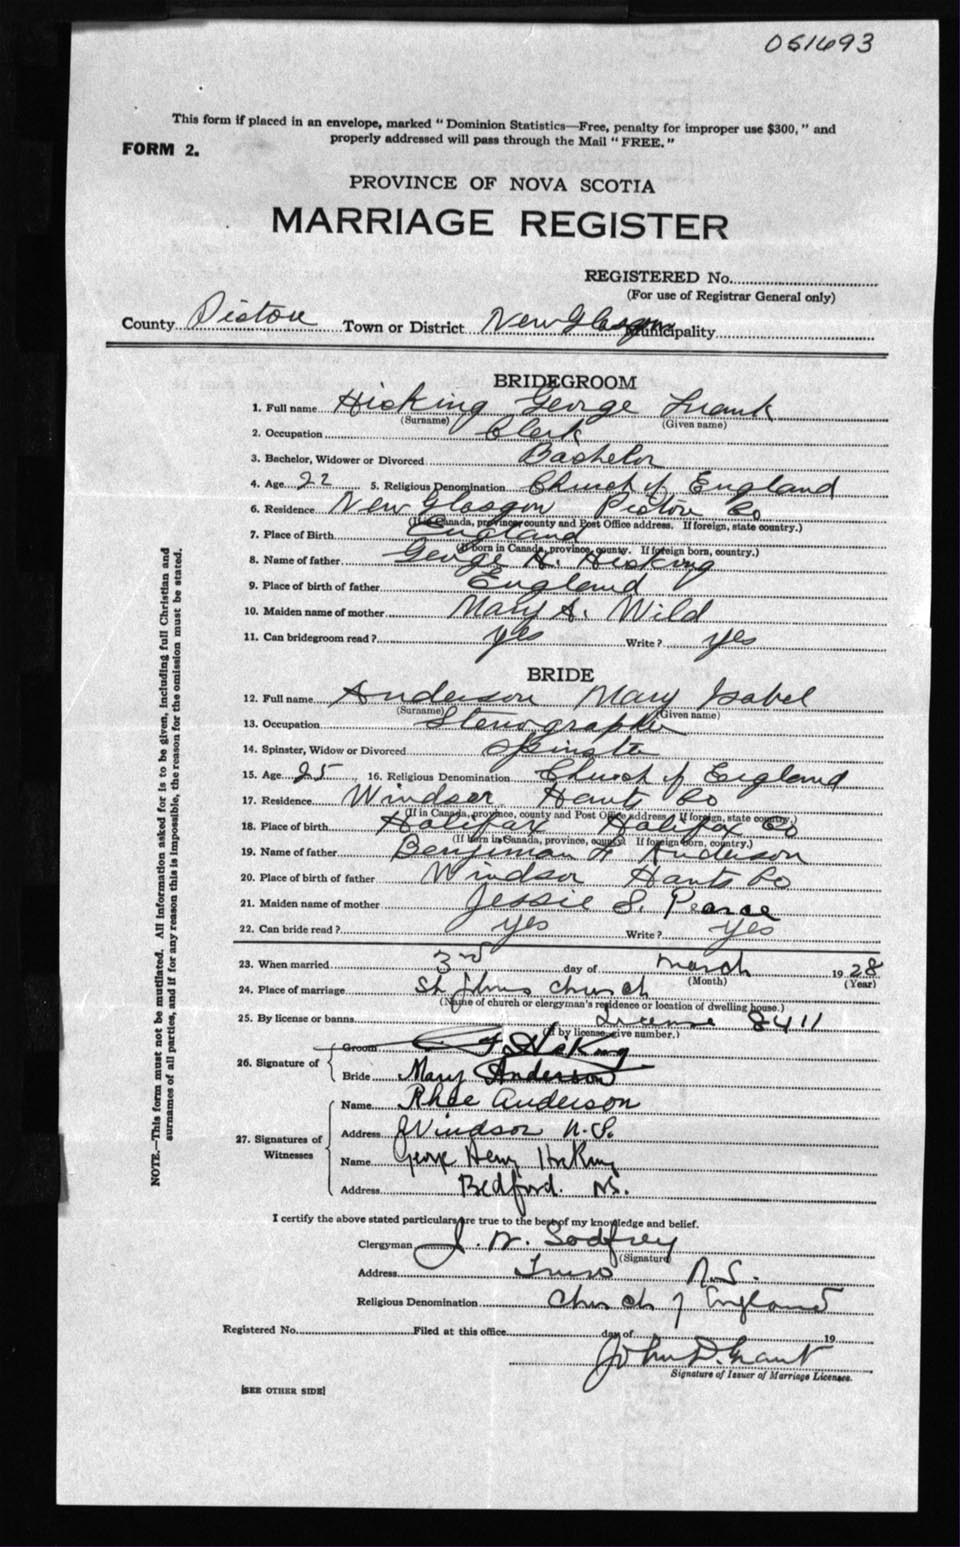 051693
This form if placed in an envelope, marked "Dominion Statistics—Free, penalty for improper use $300," and
properly addressed will pass through the Mail "FREE."
FORM 2.
PROVINCE OF NOVA SCOTIA
MARRIAGE REGISTER
REGISTERED No.
(For use of Registrar General only)
County Pictou Town or District New Glasgow Municipality
BRIDEGROOM
1. Full name Hicking George Frank
(Surname) (Given name)
2. Occupation Clerk
3. Bachelor, Widower or Divorced Bachelor
4. Age 22 5. Religious Denomination Church of England
6. Residence New Glasgow Pictou Co
(If in Canada, province, county and Post Office address. If foreign, state country.)
7. Place of Birth England
(If born in Canada, province, county. If foreign born, country.)
8. Name of father George H. Hicking
9. Place of birth of father England
10. Maiden name of mother Mary A. Wild
11. Can bridegroom read? yes Write? yes
BRIDE
12. Full name Anderson Mary Isabel
(Surname) (Given name)
13. Occupation Stenographer
14. Spinster, Widow or Divorced Spinster
15. Age 25, 16. Religious Denomination Church of England
17. Residence Windsor Hants Co
(If in Canada, province, county and Post Office address. If foreign, state country.)
18. Place of birth Halifax Halifax Co
(If born in Canada, province, county. If foreign born, country.)
19. Name of father Benjiman F Anderson
20. Place of birth of father Windsor Hants Co
21. Maiden name of mother Jessie S. Pearce
22. Can bride read? yes Write? yes
23. When married 3rd day of March 1928
(Month) (Year)
24. Place of marriage St Johns Church
(Name of church or clergyman's residence or location of dwelling house.)
25. By license or banns License 8411
(If by license, give number.)
26. Signature of
Groom G F Hicking
Bride Mary Anderson
27. Signatures of Witnesses
Name Rhoe Anderson
Address Windsor N.S.
Name George Henry Hicking
Address Bedford. NS.
I certify the above stated particulars are true to the best of my knowledge and belief.
Clergyman J. W. Godfrey
(Signature)
Address Truro N.S.
Religious Denomination Church of England
Registered No. Filed at this office day of 19
John D. Grant
Signature of Issuer of Marriage Licenses.
[SEE OTHER SIDE]
NOTE.—This form must not be mutilated. All Information asked for is to be given, including full Christian and
surnames of all parties, and if for any reason this is impossible, the reason for the omission must be stated.